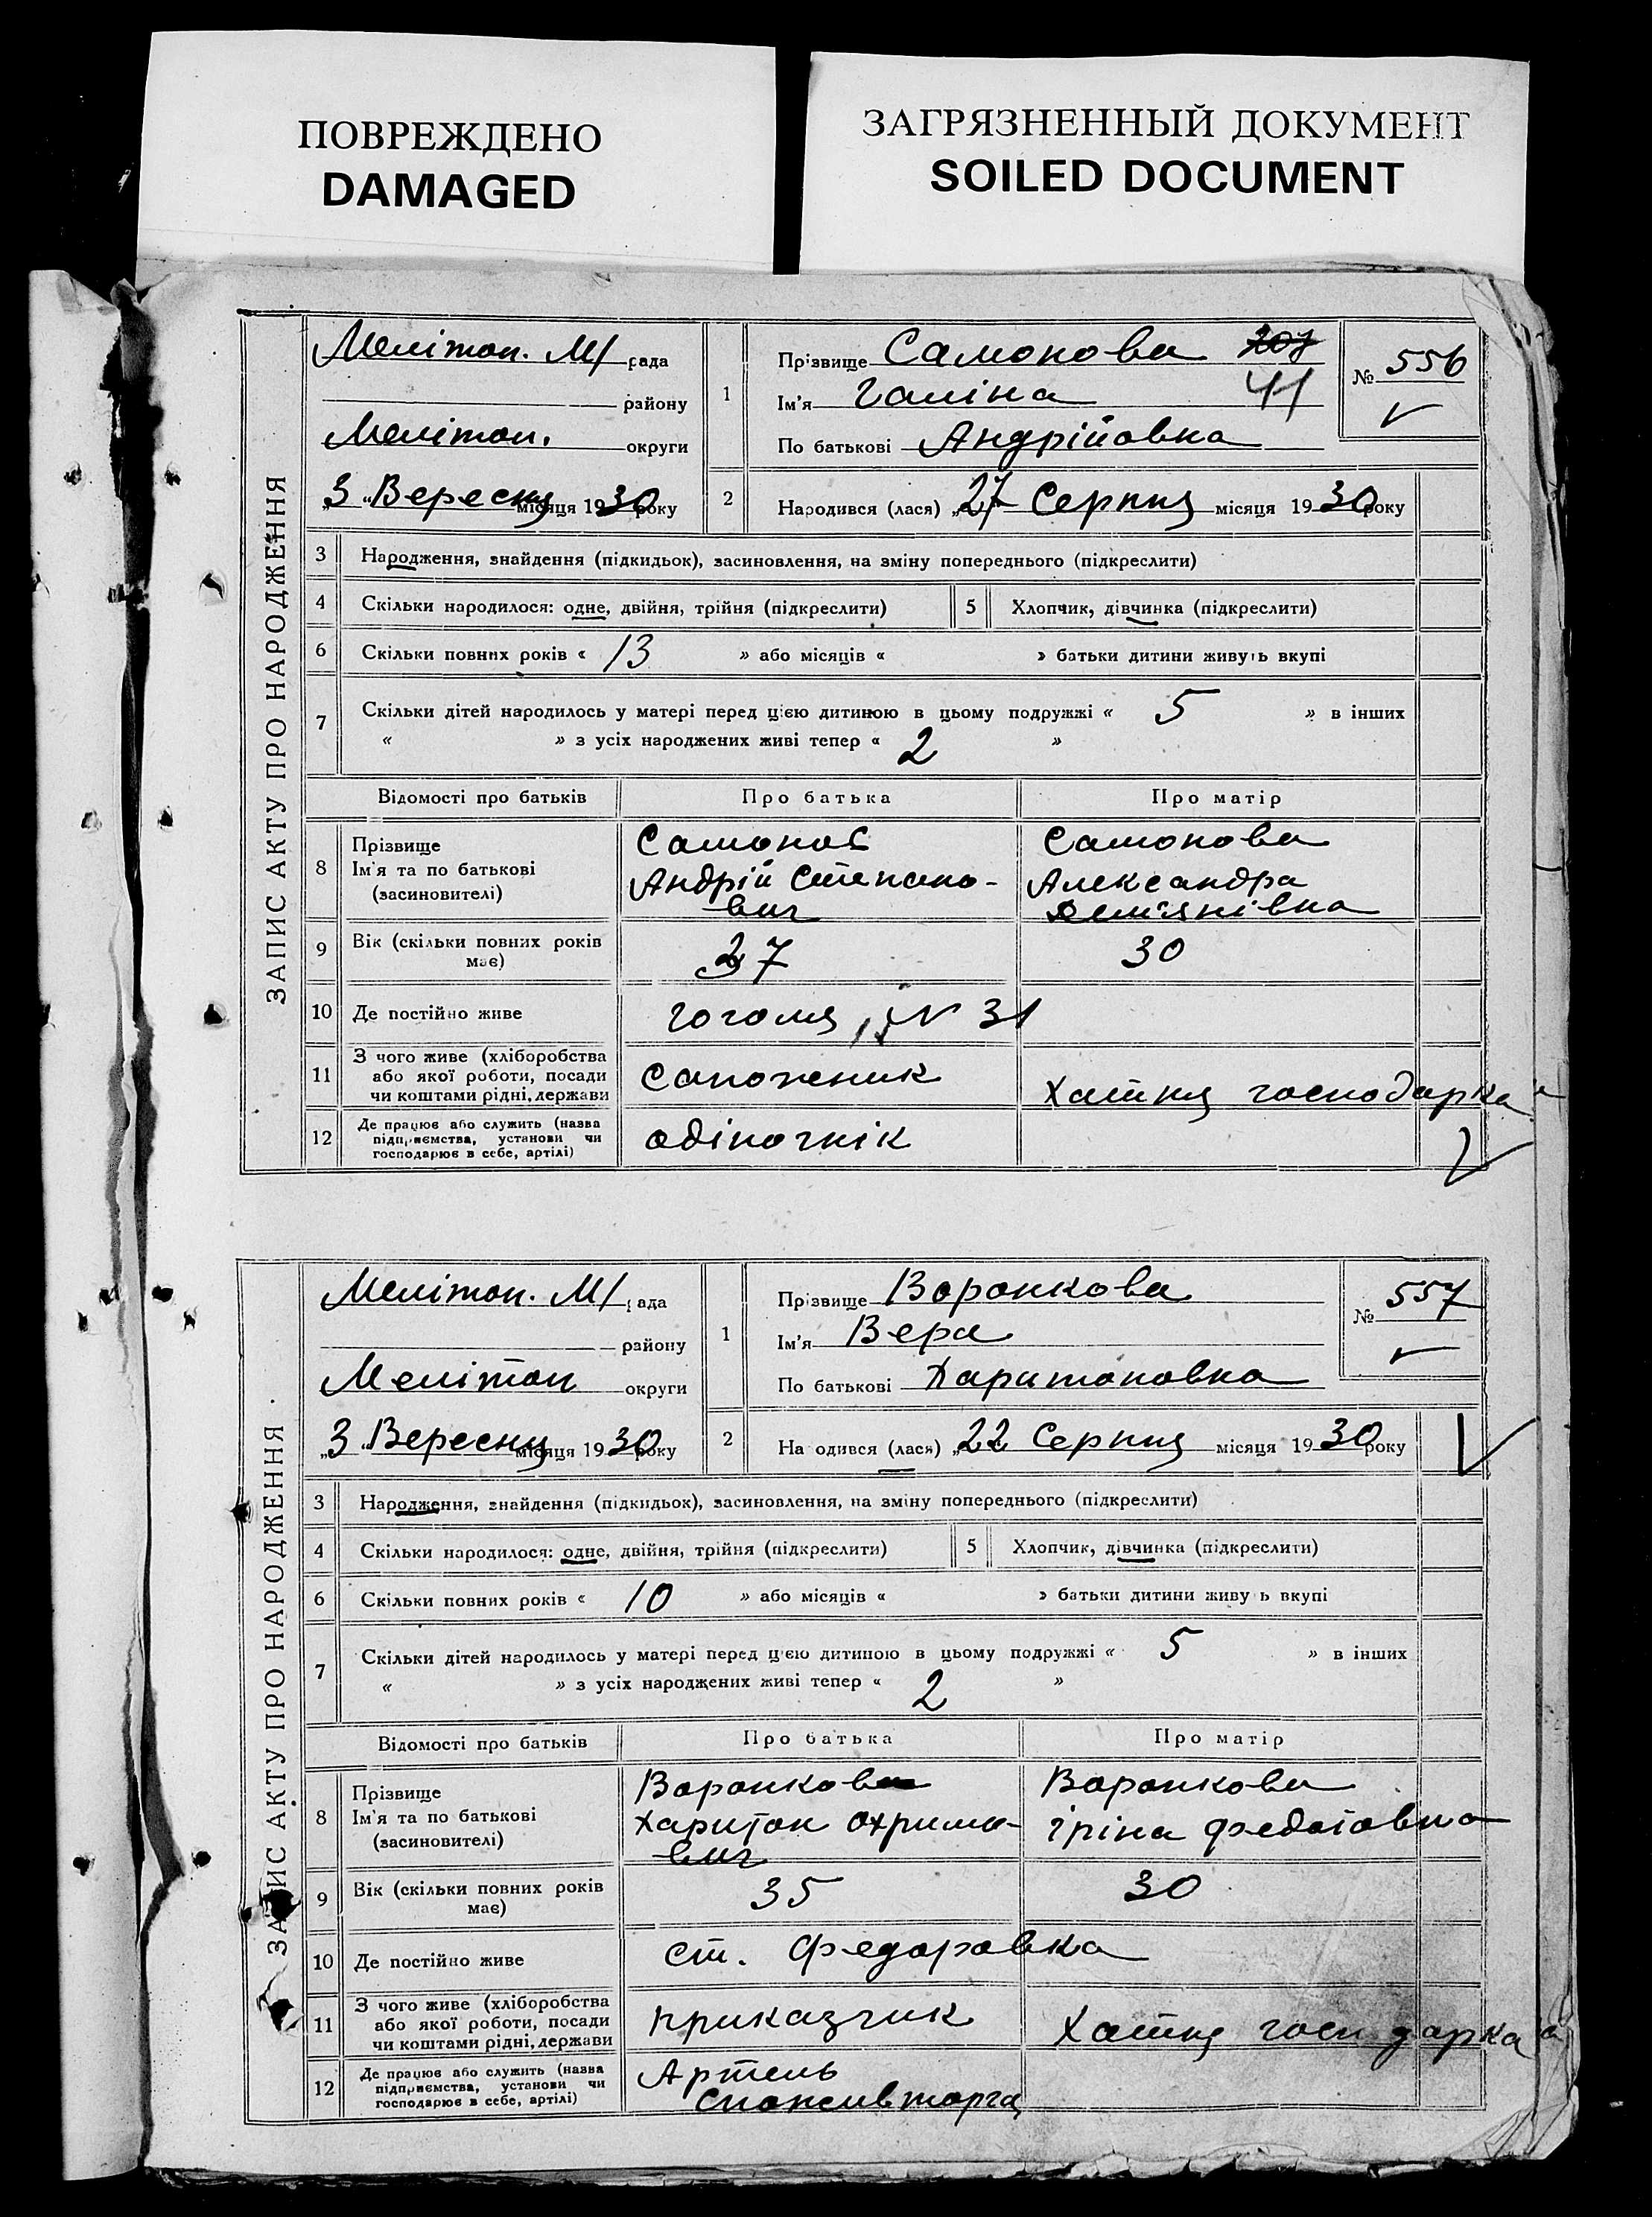 ПОВРЕЖДЕНО
DAMAGED
ЗАГРЯЗНЕННЫЙ ДОКУМЕНТ
SOILED DOCUMENT
ЗАПИС АКТУ ПРО НАРОДЖЕННЯ
Мелітоп. М/ рада
району
Мелітоп. округи
„3 “ Вересня місяця 1930 року
1
Прізвище Самонова 207
Ім'я Галіна 41
По батькові Андрійовна
№ 556
2
Народився (лася) „27 Серпня місяця 1930 року
3 Народження, знайдення (підкидьок), засиновлення, на зміну попереднього (підкреслити)
4 Скільки народилося: одне, двійня, трійня (підкреслити) 5 Хлопчик, дівчинка (підкреслити)
6 Скільки повних років « 13 » або місяців « » батьки дитини живуть вкупі
7 Скільки дітей народилось у матері перед цією дитиною в цьому подружжі « 5 » в інших
« » з усіх народжених живі тепер « 2 »
Відомості про батьків Про батька Про матір
8 Прізвище
Ім'я та по батькові
(засиновителі)
Самонов
Андрій Степано-
вич
Самонова
Александра
Демянівна
9 Вік (скільки повних років
має)
37 30
10 Де постійно живе Гоголя, N 31
11 З чого живе (хліборобства
або якої роботи, посади
чи коштами рідні, держави
Сапожник Хатня господарка
12 Де працює або служить (назва
підприємства, установи чи
господарює в себе, артілі)
одіночнік
ЗАПИС АКТУ ПРО НАРОДЖЕННЯ
Мелітоп. М/ рада
району
Мелітоп округи
„3 “ Вересня місяця 1930 року
1
Прізвище Воронкова
Ім'я Вера
По батькові Харитоновна
№ 557
2
На одився (лася) „22 Серпня місяця 1930 року
3 Народження, знайдення (підкидьок), засиновлення, на зміну попереднього (підкреслити)
4 Скільки народилося: одне, двійня, трійня (підкреслити) 5 Хлопчик, дівчинка (підкреслити)
6 Скільки повних років « 10 » або місяців « » батьки дитини живу ь вкупі
7 Скільки дітей народилось у матері перед цією дитиною в цьому подружжі « 5 » в інших
« » з усіх народжених живі тепер « 2 »
Відомості про батьків Про батька Про матір
8 Прізвище
Ім'я та по батькові
(засиновителі)
Воронков
Харитон Охримо-
вич
Воронкова
Іріна Федотовна
9 Вік (скільки повних років
має)
35 30
10 Де постійно живе ст. Федоровка
11 З чого живе (хліборобства
або якої роботи, посади
чи коштами рідні, держави
приказчик Хатня господарка
12 Де працює або служить (назва
підприємства, установи чи
господарює в себе, артілі)
Артель
Споживторга